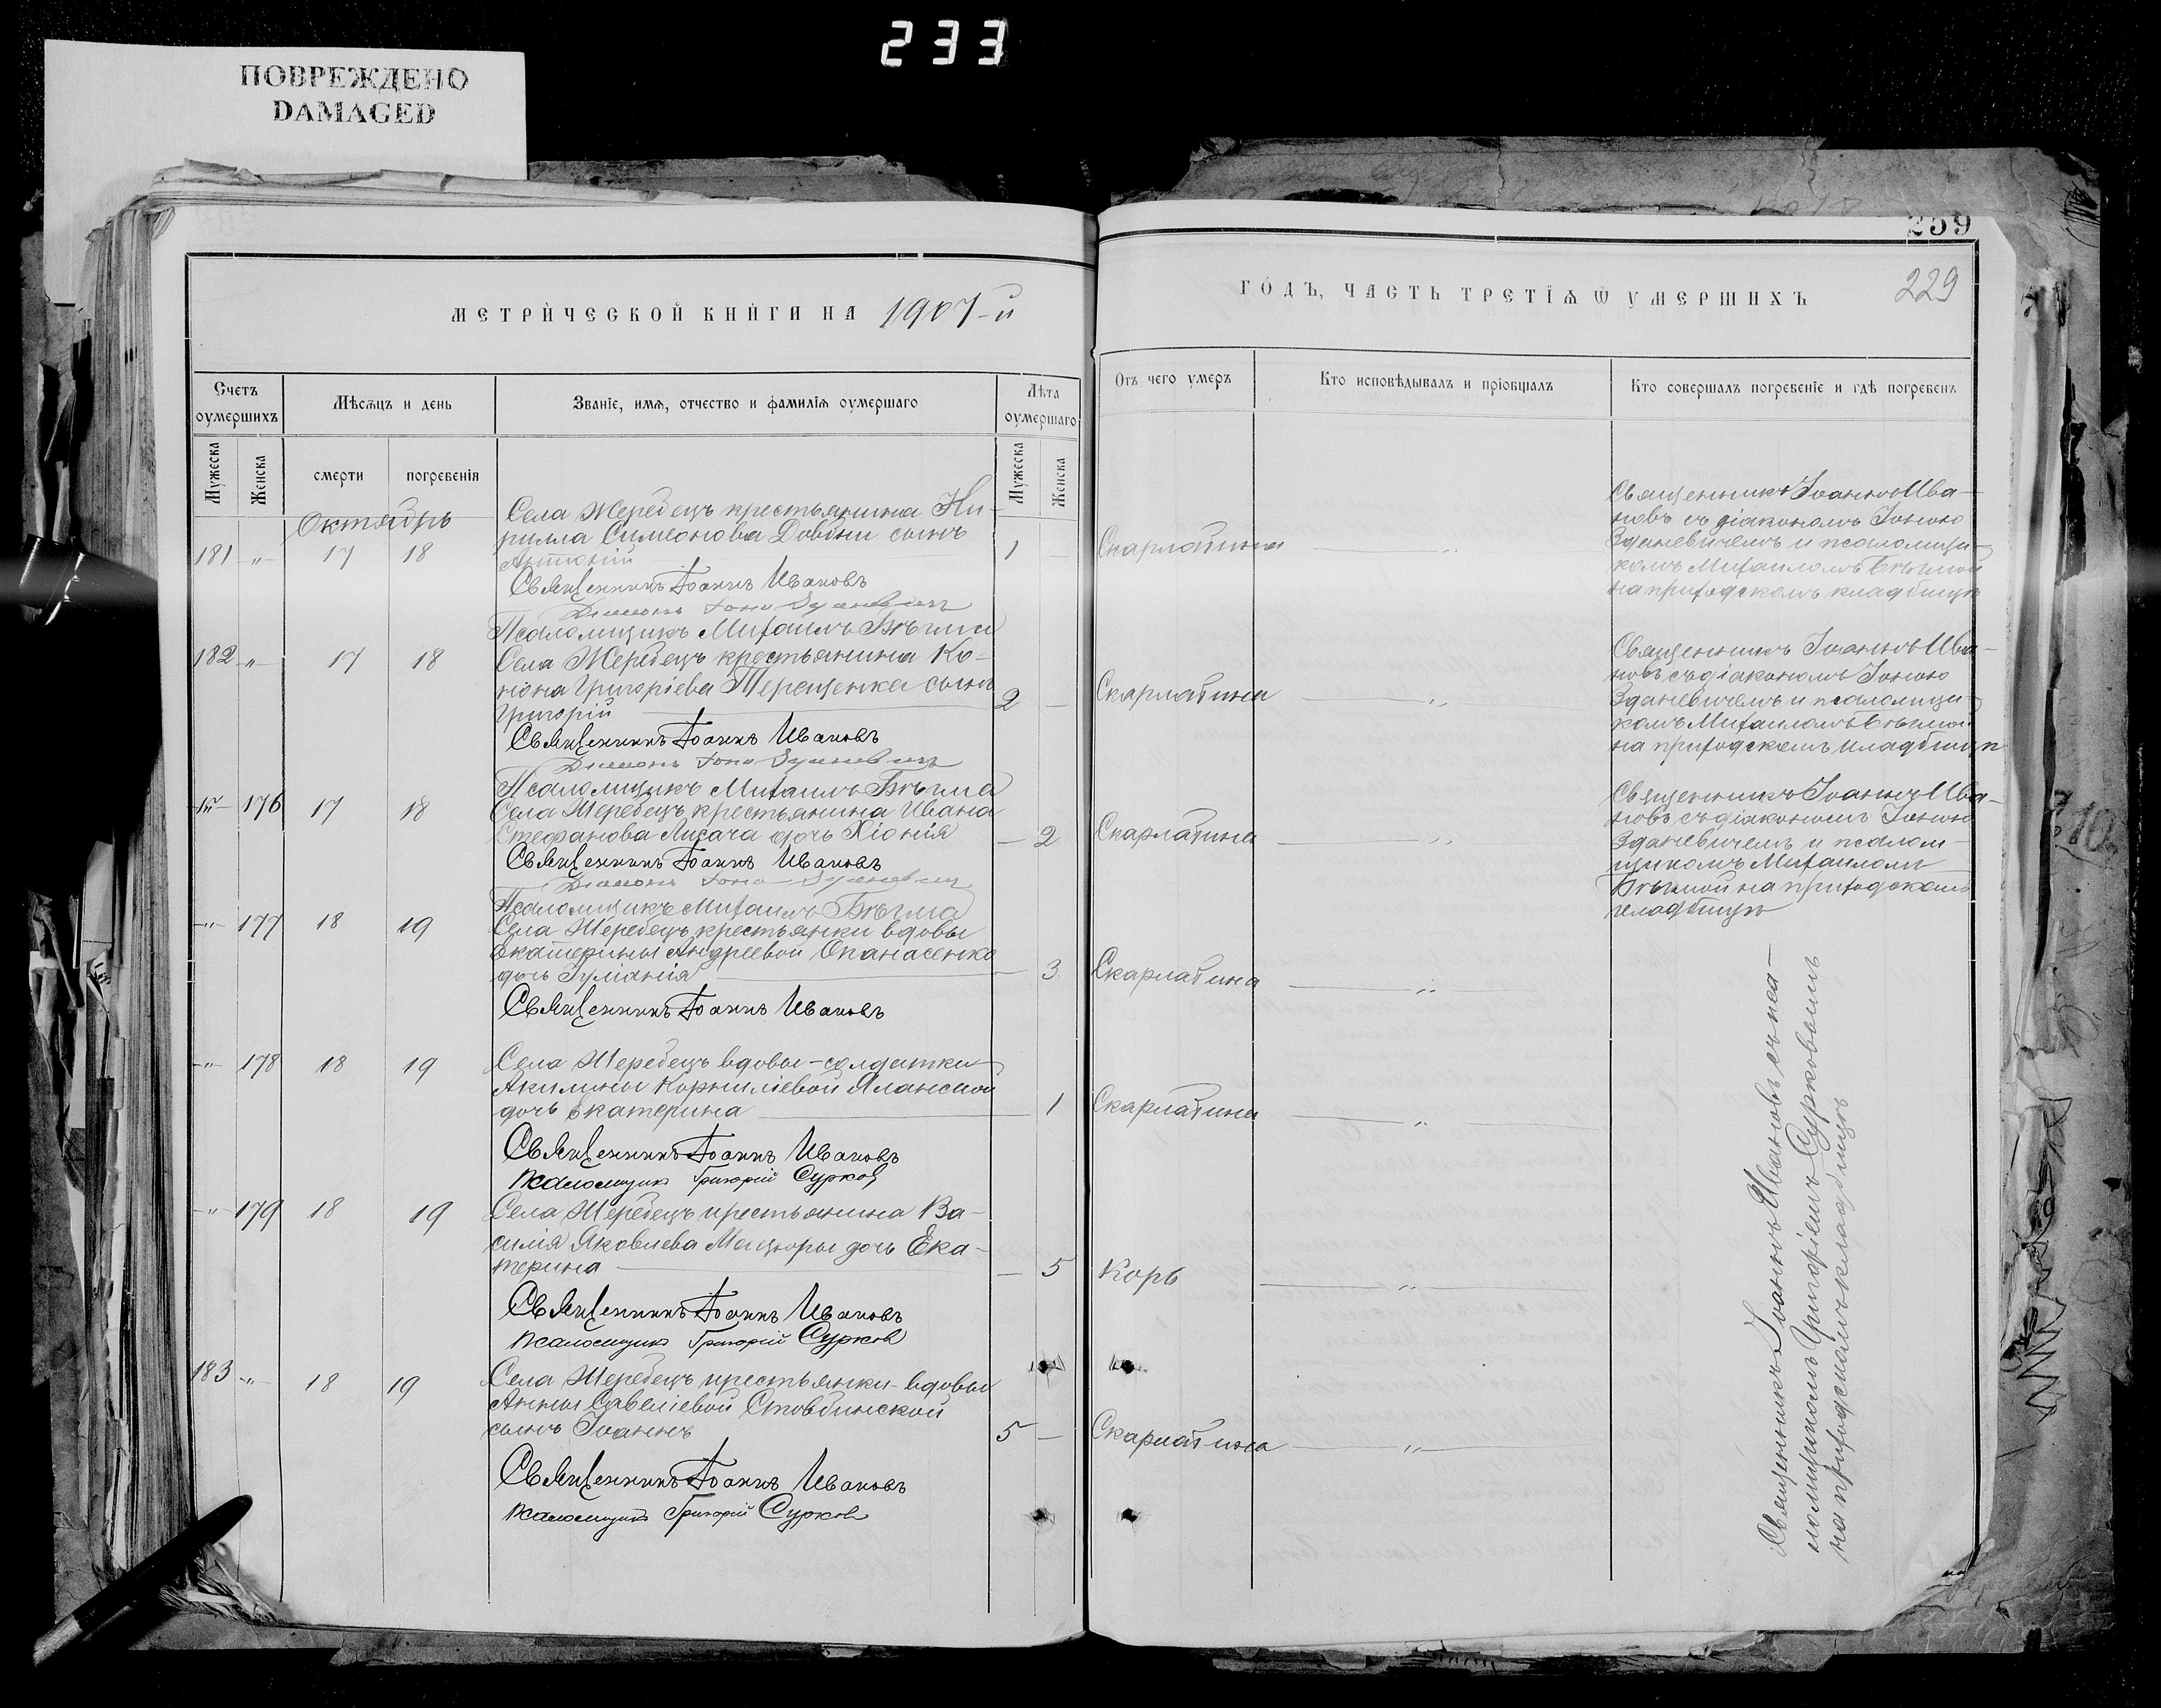 233
ПОВРЕЖДЕНО
DAMAGED
МЕТРИ́ЧЕСКОЙ КНИ́ГИ НА 1907-й
Счетъ оумершихъ
Мѣсяцъ и день
Званіе, имя, отчество и фамилія оумершаго
Лѣта оумершаго
Мужеска
Женска
смерти
погребенія
Мужеска
Женска
Октябрь
Села Жеребецъ крестьянина Ки-
рилла Симеонова Довбни сынъ
181 -"- 17 18 Антоній 1 —
Священникъ Іоаннъ Ивановъ
Діаконъ Іона Зданевичъ
Псаломщикъ Михаилъ Бѣгма
182 -"- 17 18 Села Жеребецъ крестьянина Ко-
нона Григоріева Терещенка сынъ
Григорій 2 —
Священникъ Іоаннъ Ивановъ
Діаконъ Іона Зданевичъ
Псаломщикъ Михаилъ Бѣгма
-"- 176 17 18 Села Жеребецъ крестьянина Ивана
Стефанова Лисача дочь Хіонія — 2
Священникъ Іоаннъ Ивановъ
Діаконъ Іона Зданевичъ
Псаломщикъ Михаилъ Бѣгма
-"- 177 18 19 Села Жеребецъ крестьянки вдовы
Екатерины Андреевой Опанасенко
дочь Іуліанія — 3
Священникъ Іоаннъ Ивановъ
-"- 178 18 19 Села Жеребецъ вдовы-солдатки
Акилины Корниліевой Яланской
дочь Екатерина — 1
Священникъ Іоаннъ Ивановъ
Псаломщикъ Григорій Сурков
-"- 179 18 19 Села Жеребецъ крестьянина Ва-
силія Яковлева Мацюры дочь Ека-
терина — 5
Священникъ Іоаннъ Ивановъ
Псаломщикъ Григорій Сурков
183 -"- 18 19 Села Жеребецъ крестьянки-вдовы
Анны Савеліевой Стовбинской
сынъ Іоаннъ 5 —
Священникъ Іоаннъ Ивановъ
Псаломщикъ Григорій Сурков
259
229
ГОДЪ, ЧАСТЬ ТРЕТІЯ Ѿ УМЕРШИХЪ
Отъ чего умеръ
Кто исповѣдывалъ и пріобщалъ
Кто совершалъ погребеніе и гдѣ погребенъ
Священникъ Іоаннъ Ива-
новъ съ діакономъ Іоною
Скарлатина — " — Зданевичемъ и псаломщи-
комъ Михаиломъ Бѣгмой
на приходскомъ кладбищѣ
Священникъ Іоаннъ Ива-
новъ съ діакономъ Іоною
Скарлатина — " — Зданевичемъ и псаломщи-
комъ Михаиломъ Бѣгмой
на приходскомъ кладбищѣ
Священникъ Іоаннъ Ива-
новъ съ діакономъ Іоною
Скарлатина — " — Зданевичемъ и псалом-
щикомъ Михаиломъ
Бѣгмой на приходскомъ
кладбищѣ
Скарлатина — " —
Скарлатина — " —
Корь — " —
Скарлатина — " —
Священникъ Іоаннъ Ивановъ съ пса-
ломщикомъ Григоріемъ Сурковымъ
на приходскомъ кладбищѣ